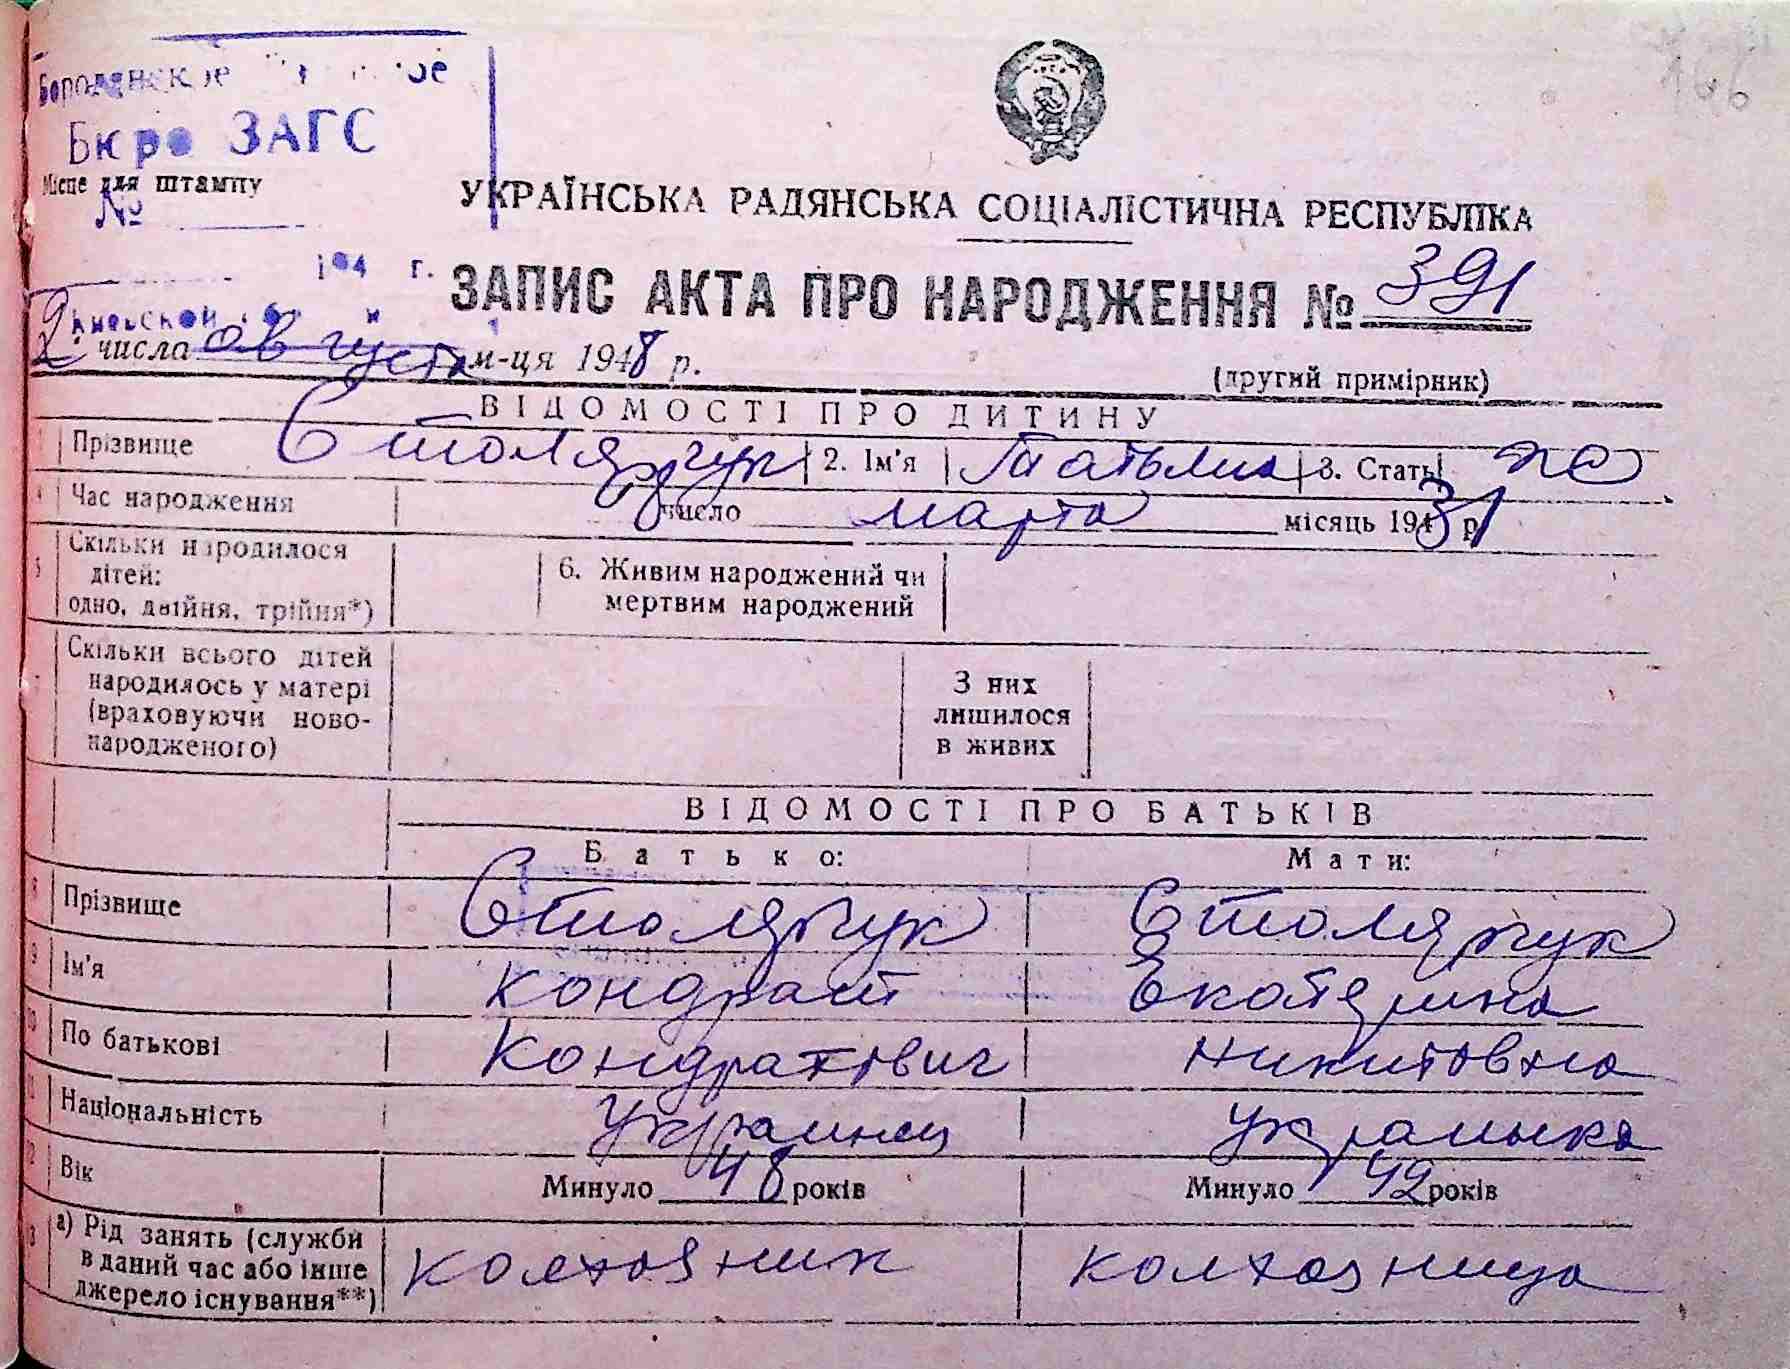 166
Бородянское
Бюро ЗАГС
Місце для штампу
№
194 г.
Киевской
УКРАЇНСЬКА РАДЯНСЬКА СОЦІАЛІСТИЧНА РЕСПУБЛІКА
ЗАПИС АКТА ПРО НАРОДЖЕННЯ № 391
2 числа августа м-ця 1948 р.
(другий примірник)
ВІДОМОСТІ ПРО ДИТИНУ
1 Прізвище Столярчук 2. Ім'я Татьяна 3. Стать ж
4 Час народження 8 число марта місяць 1931 р.
5 Скільки народилося
дітей:
одно, двійня, трійня*)
6. Живим народжений чи
мертвим народжений
7 Скільки всього дітей
народилось у матері
(враховуючи ново-
народженого)
З них
лишилося
в живих
ВІДОМОСТІ ПРО БАТЬКІВ
Батько: Мати:
8 Прізвище Столярчук Столярчук
9 Ім'я Кондрат Екатерина
10 По батькові Кондратович Никитовна
11 Національність Украинец Украинка
12 Вік Минуло 48 років Минуло 42 років
13 а) Рід занять (служби
в даний час або інше
джерело існування**)
колхозник колхозница